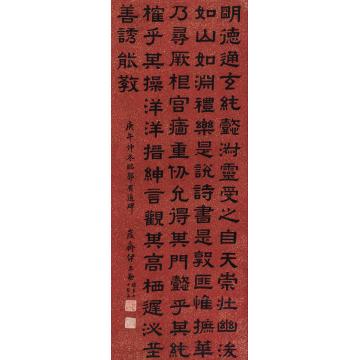 明德通玄純懿淑靈受之自天崇壯幽浚
如山如淵禮樂是說詩書是敦匪惟摭華
乃尋厥根宮牆重仞允得其門懿乎其純
確乎其操洋洋搢紳言觀其高棲遲泌丘
善誘能教
庚午仲冬臨郭有道碑